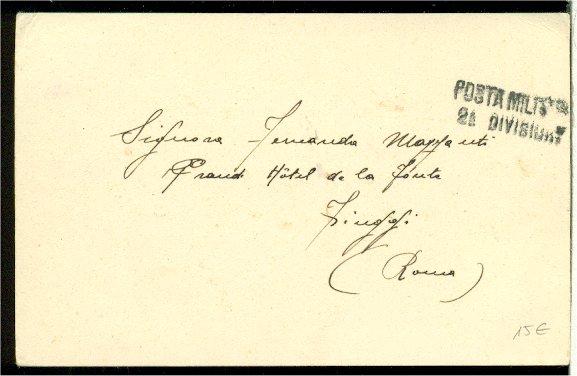 POSTA MILITARE
2a DIVISIONE
Signora Fernanda
Grand Hôtel de la Fonte
Fiuggi
(Roma)
15€